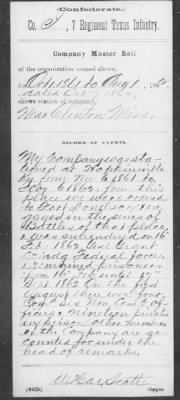 (Confederate.)
Co. I, 7 Regiment Texas Infantry.
Company Muster Roll
of the organization named above,
for Oct 1861 to Aug 1, 1862.
dated Oct 1862,
shows station of company,
Near Clinton Miss.
RECORD OF EVENTS.
My Company was sta-
tioned at Hopkinsville
Ky from 1861 to
Feby 6 1862. from this
place we were ordered
to Fort Donelson. en-
gaged in the series of
Battles of that place,
& was surrendered on 16th
Feb. 1862 Genl Grant
Comdg Federal force.
& remained prisoners
from 16th Feb until Sept
1st 1862 On the first
August there
Non Com. Of-
ficers & Nineteen privates
in prison other members
of the Company are ac-
counted for under the
head of remarks.
Scott
(642b)
Copyist.